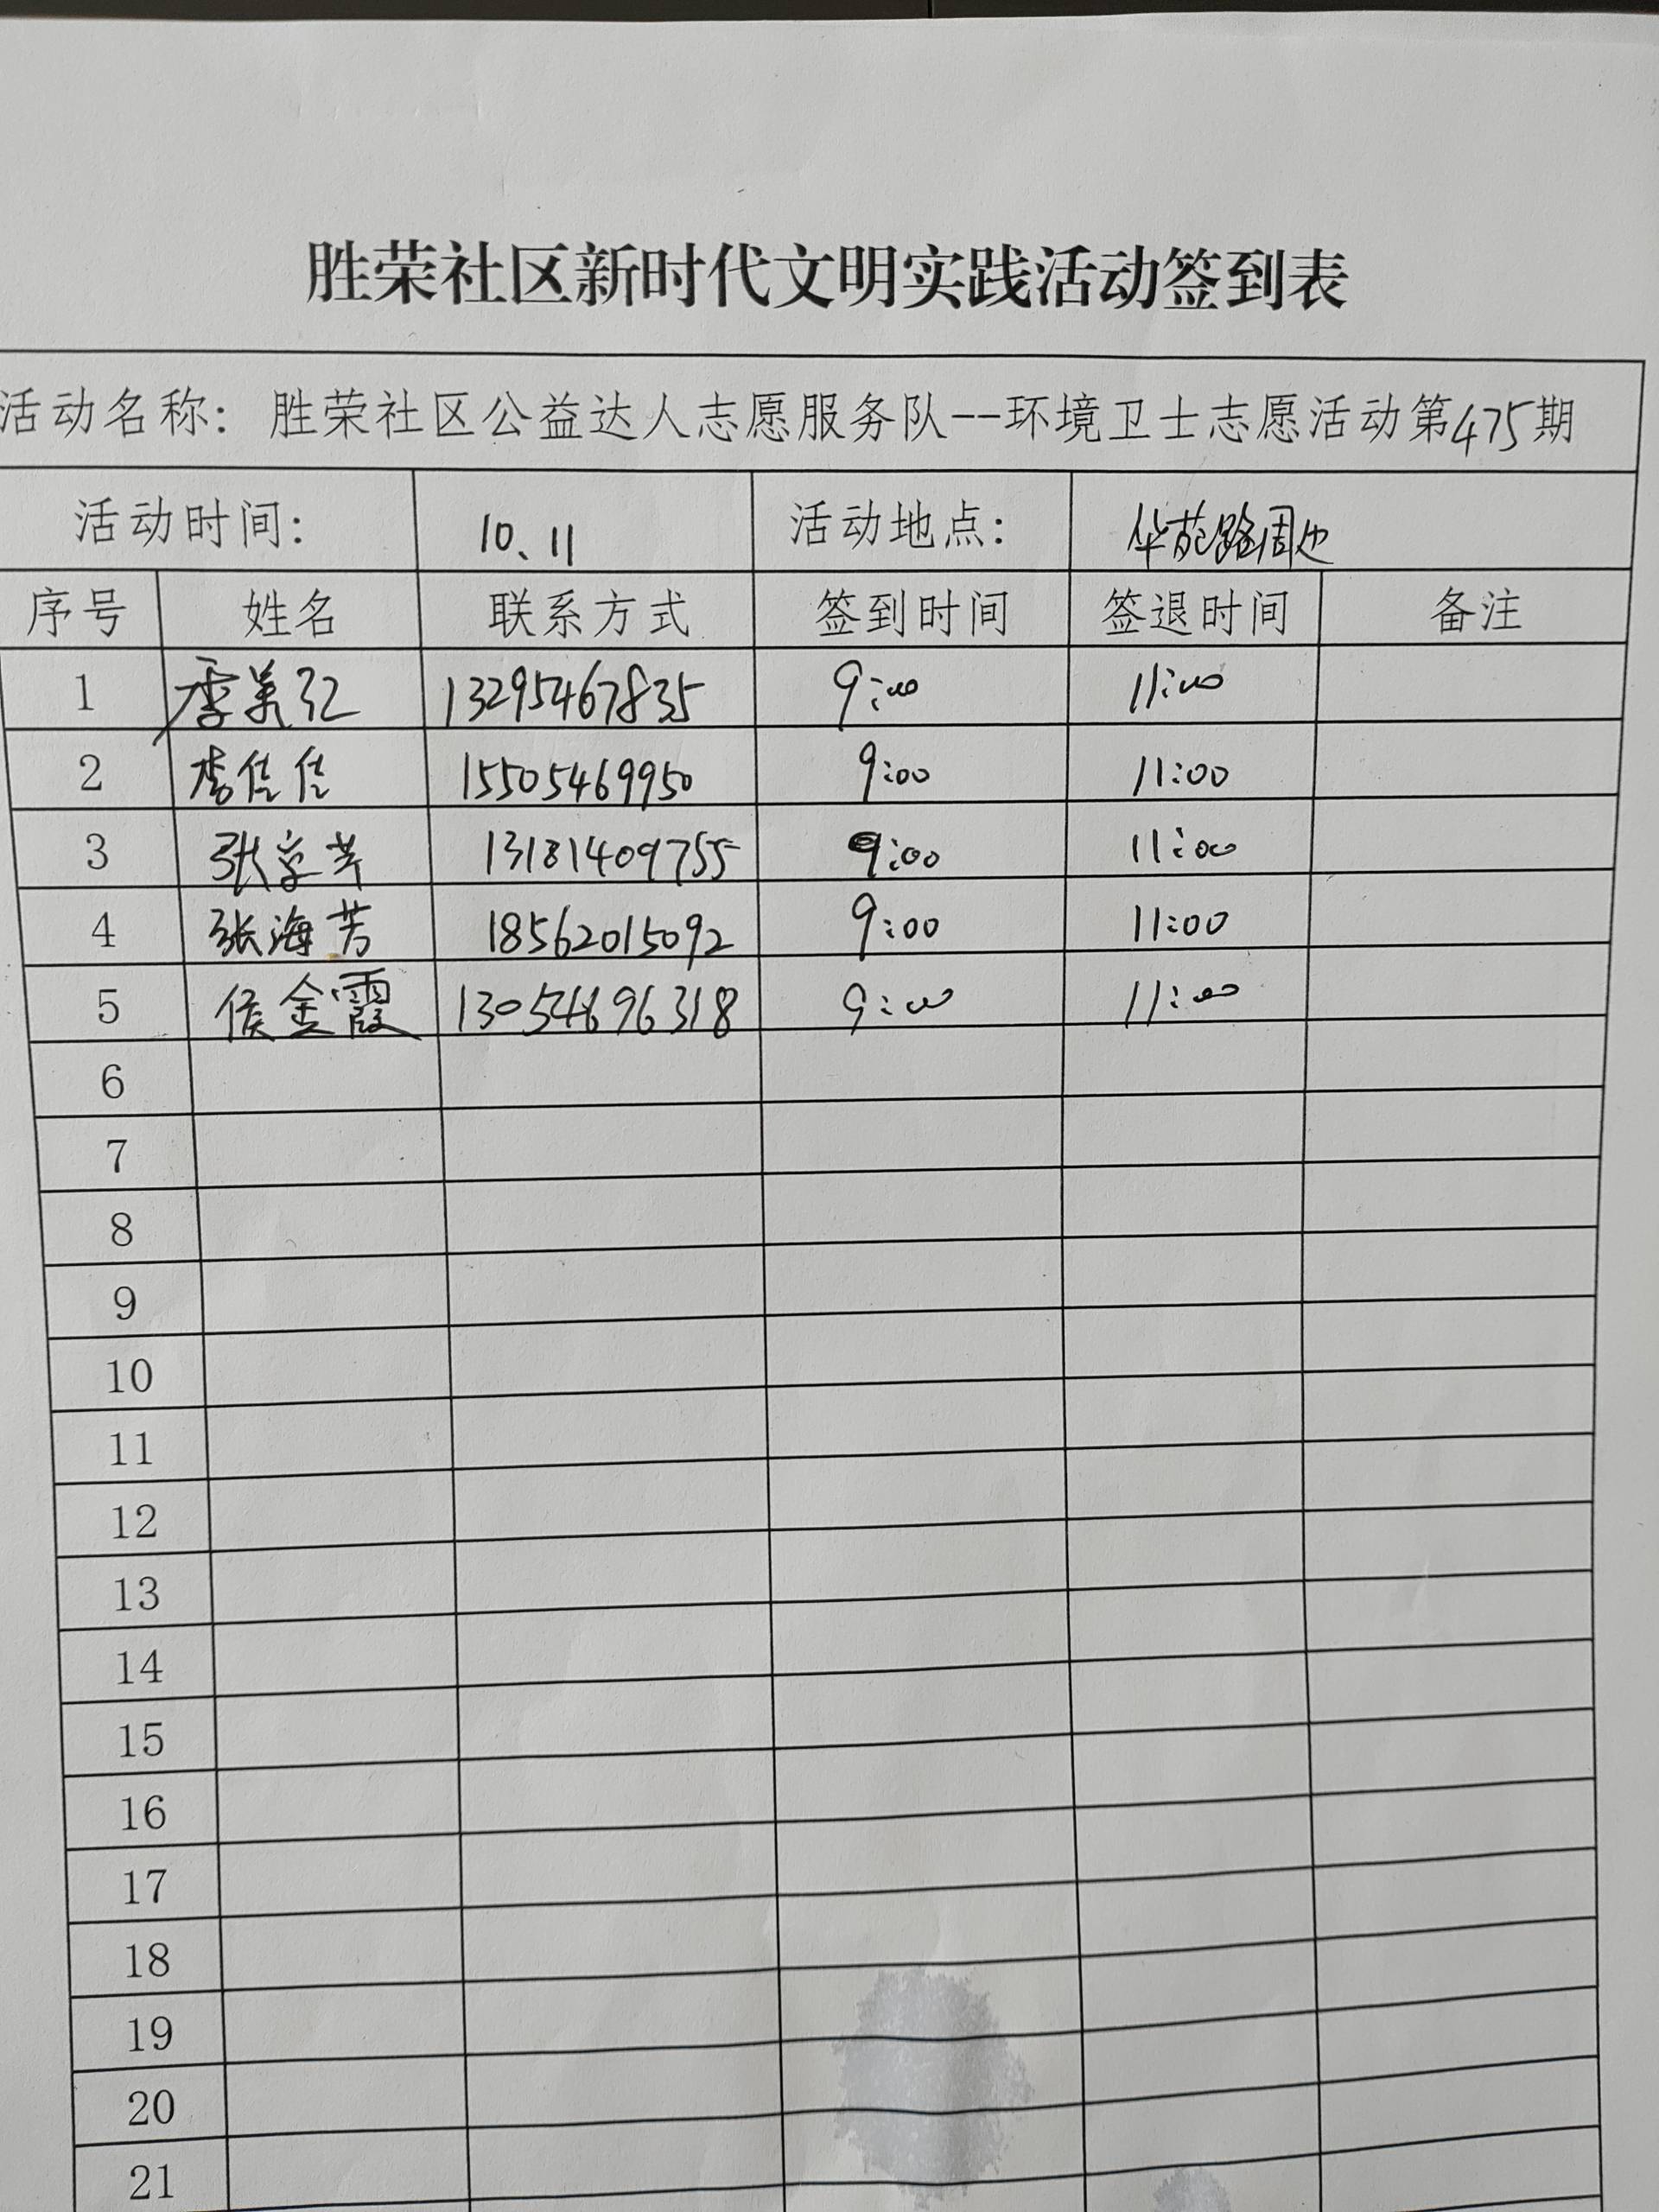 胜荣社区新时代文明实践活动签到表
活动名称: 胜荣社区公益达人志愿服务队--环境卫士志愿活动第475期
活动时间: 10、11 活动地点: 华苑路周边
序号 姓名 联系方式 签到时间 签退时间 备注
1 季美红 13295467835 9:00 11:00
2 李佳佳 15505469950 9:00 11:00
3 张 13181409755 9:00 11:00
4 张海芳 18562015092 9:00 11:00
5 侯金霞 13054696318 9:00 11:00
6
7
8
9
10
11
12
13
14
15
16
17
18
19
20
21